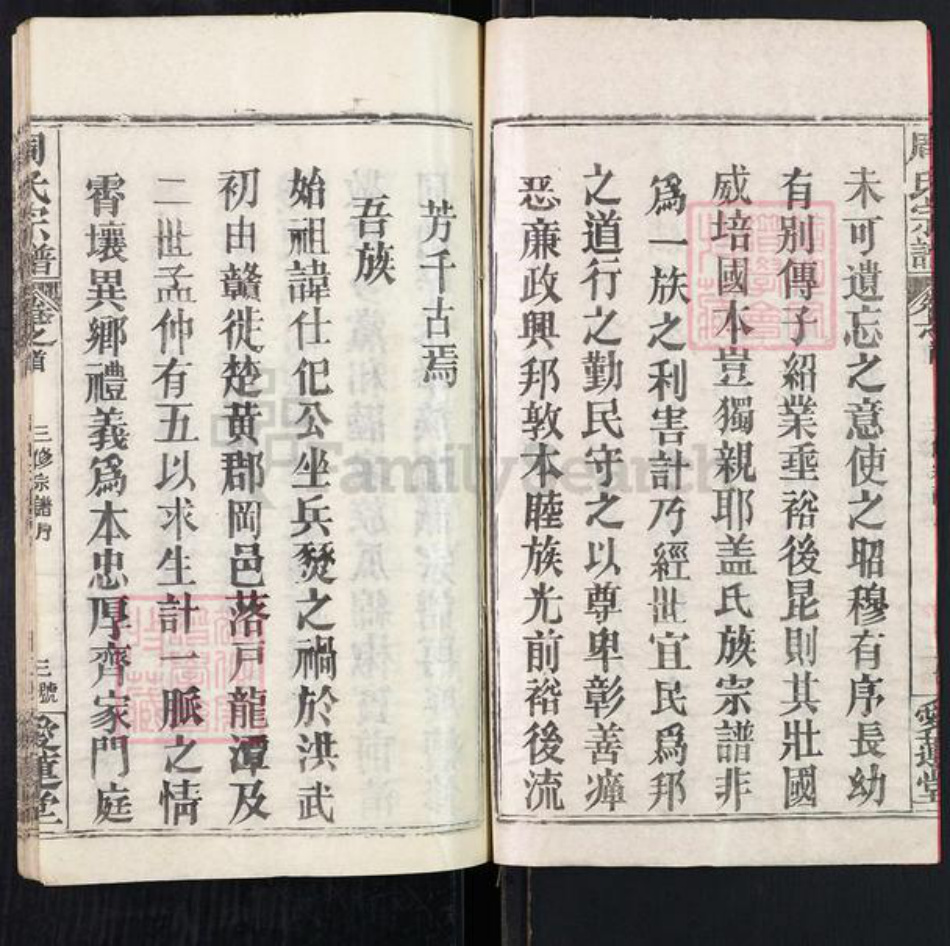 未可遺忘之意使之昭穆有序長幼
有別傳子紹業垂裕後昆則其壯國
威培國本豈獨親耶盖氏族宗譜非
爲一族之利害計乃經世宜民爲邦
之道行之勤民守之以尊卑彰善瘴
惡亷政興邦敦本睦族光前裕後流
芳千古焉
吾族
始祖諱仕伲公坐兵燹之禍於洪武
初由贛徙楚黄郡岡邑落戸龍潭及
二世孟仲有五以求生計一脈之情
霄壤異鄉禮義爲本忠厚齊家門庭
周氏宗譜
卷之首
三修宗譜序
三號
愛蓮堂
FamilySearch